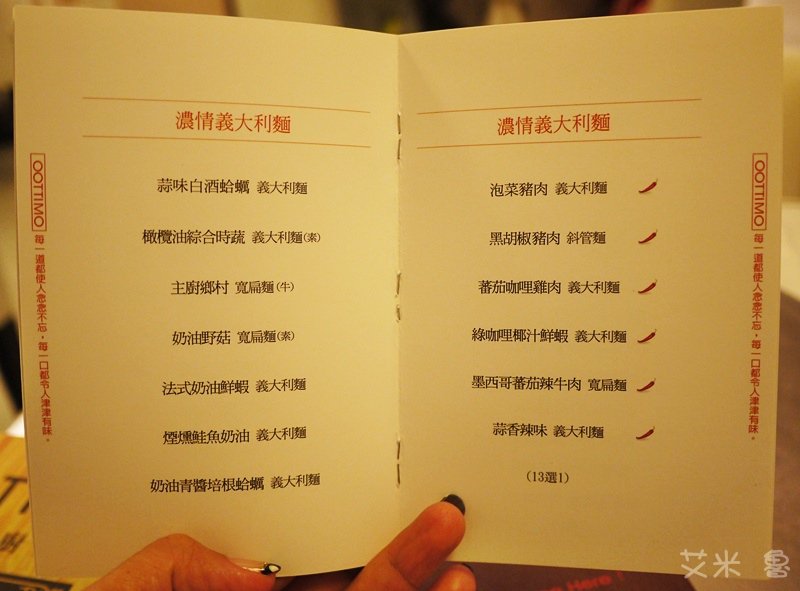 濃情義大利麵
蒜味白酒蛤蠣 義大利麵
橄欖油綜合時蔬 義大利麵(素)
主廚鄉村 寬扁麵(牛)
奶油野菇 寬扁麵(素)
法式奶油鮮蝦 義大利麵
煙燻鮭魚奶油 義大利麵
奶油青醬培根蛤蠣 義大利麵
OOTTIMO 每一道都使人念念不忘，每一口都令人津津有味。
濃情義大利麵
泡菜豬肉 義大利麵
黑胡椒豬肉 斜管麵
蕃茄咖哩雞肉 義大利麵
綠咖哩椰汁鮮蝦 義大利麵
墨西哥蕃茄辣牛肉 寬扁麵
蒜香辣味 義大利麵
(13選1)
OOTTIMO 每一道都使人念念不忘，每一口都令人津津有味。
Here!
艾米 魯